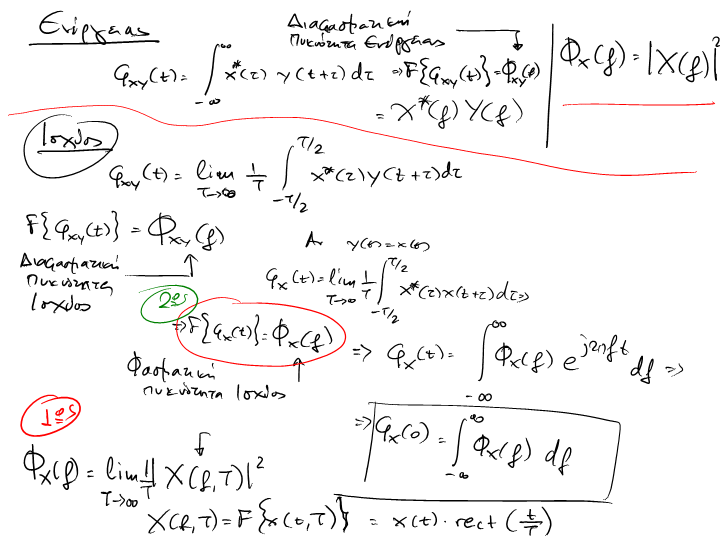 Ενέργειας
Διαφασματική
Πυκνότητα Ενέργειας
φxy(t) = ∫_{-∞}^{∞} x*(τ) y(t+τ) dτ ⇒ F{φxy(t)} = Φxy(f)
= X*(f) Y(f)
Φx(f) = |X(f)|²
Ισχύος
φxy(t) = lim_{T→∞} 1/T ∫_{-T/2}^{T/2} x*(τ) y(t+τ) dτ
F{φxy(t)} = Φxy(f)
Διαφασματική
Πυκνότητα
Ισχύος
Αν y(t) = x(t)
φx(t) = lim_{T→∞} 1/T ∫_{-T/2}^{T/2} x*(τ) x(t+τ) dτ ⇒
2ος
⇒ F{φx(t)} = Φx(f)
Φασματική
πυκνότητα Ισχύος
⇒ φx(t) = ∫_{-∞}^{∞} Φx(f) e^{j2πft} df ⇒
⇒ φx(0) = ∫_{-∞}^{∞} Φx(f) df
1ος
Φx(f) = lim_{T→∞} 1/T |X(f,T)|²
X(f,T) = F{x(t,T)} = x(t) · rect(t/T)